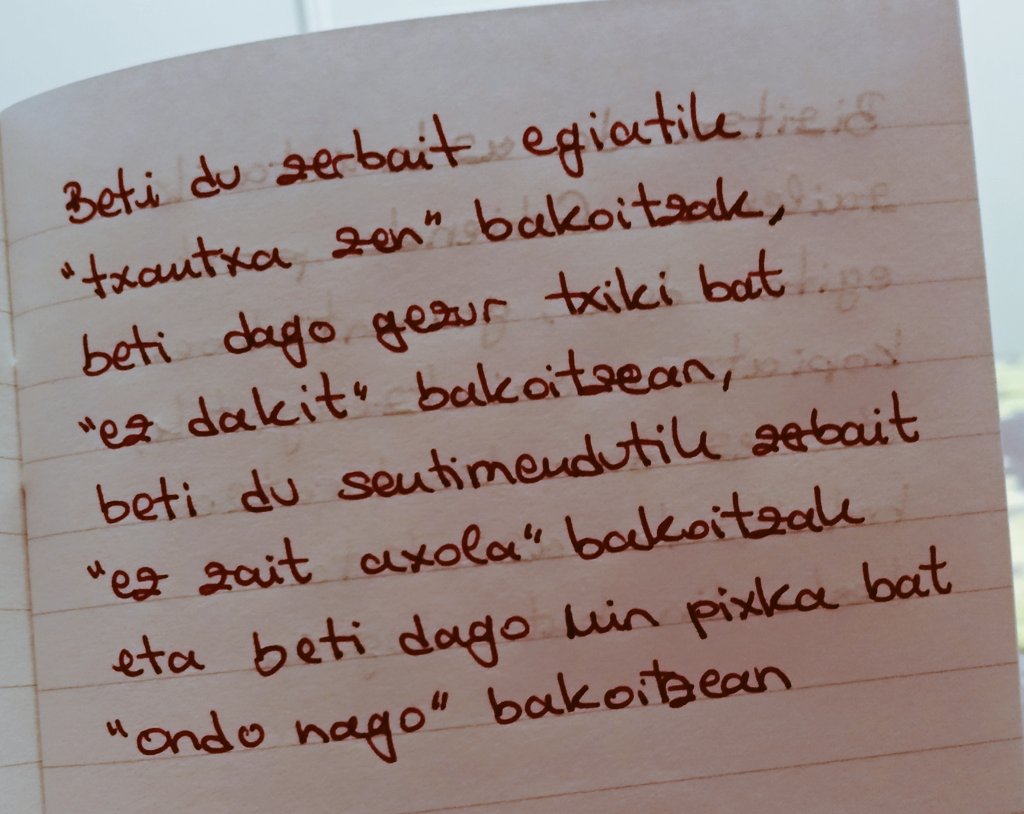 Beti du zerbait egiatik
"txantxa zen" bakoitzak,
beti dago gezur txiki bat
"ez dakit" bakoitzean,
beti du sentimendutik zerbait
"ez zait axola" bakoitzak
eta beti dago min pixka bat
"ondo nago" bakoitzean